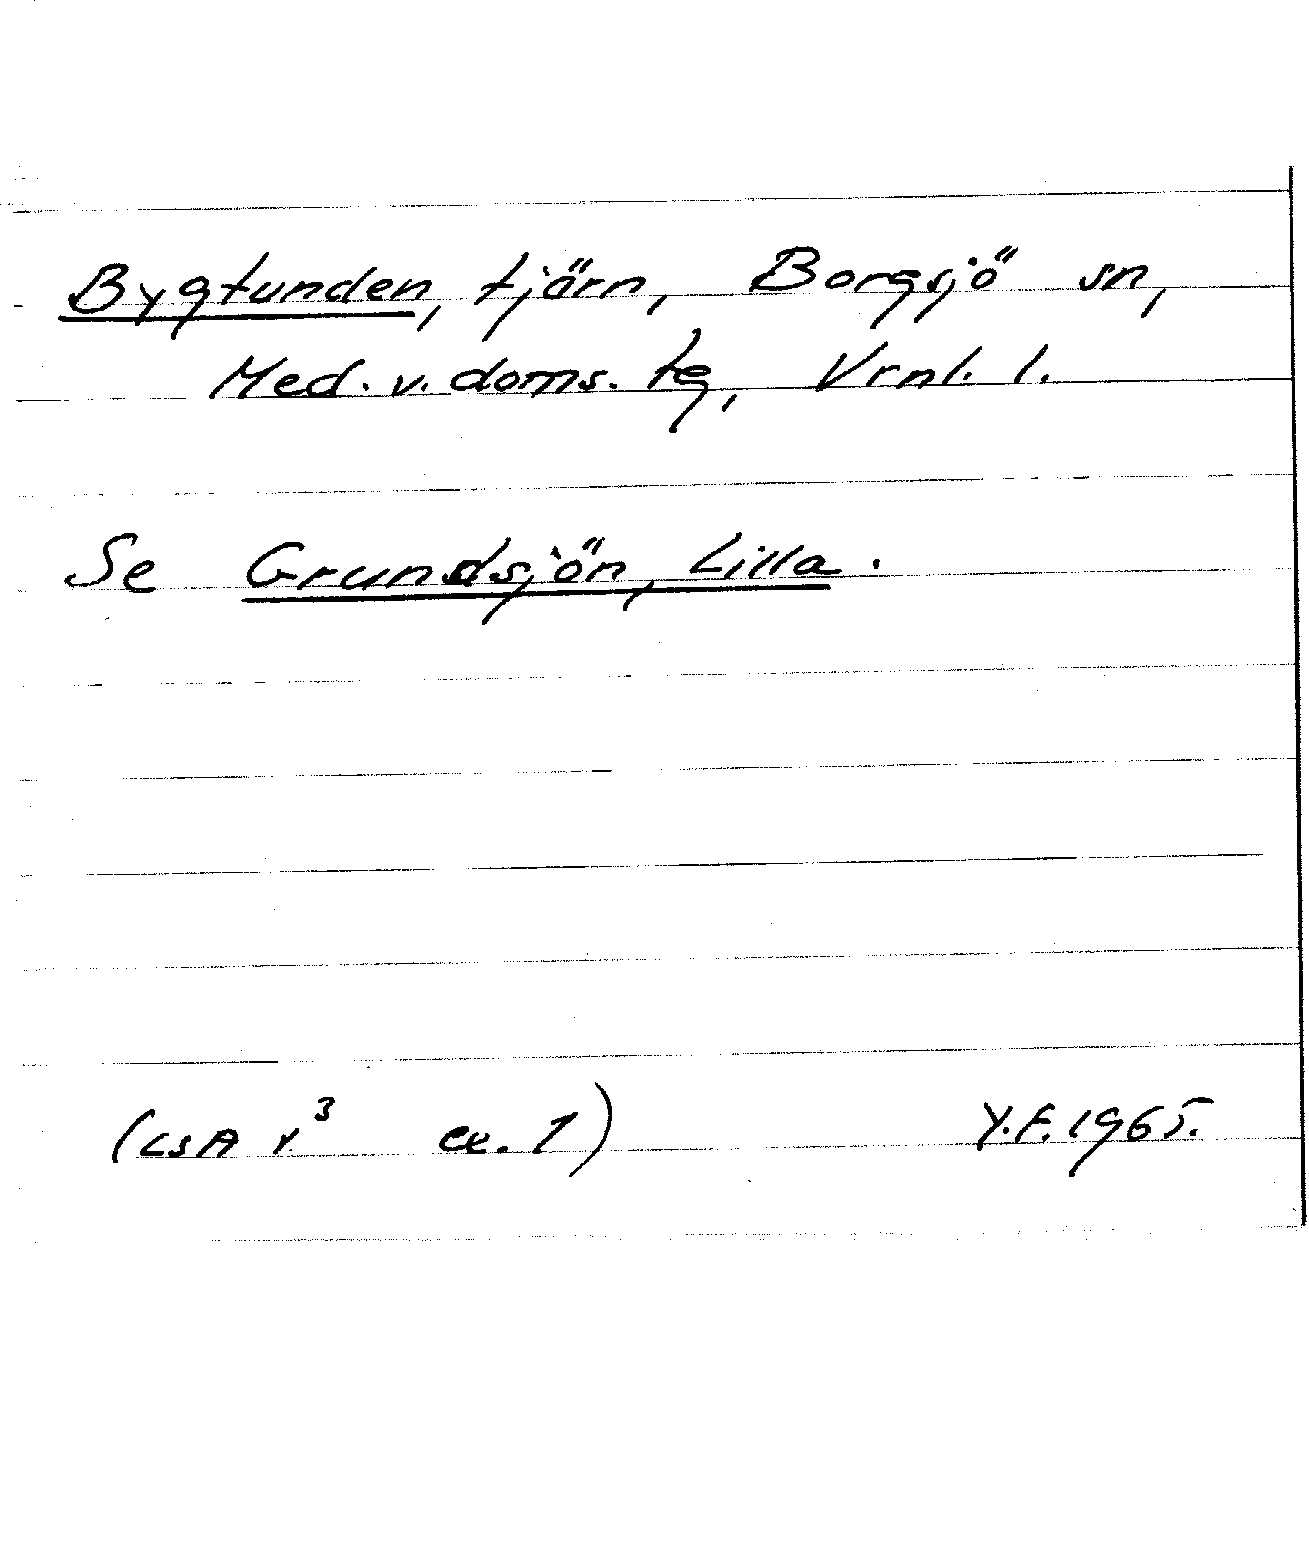 Bygtunden, tjärn, Borgsjö sn,
Med. v. doms. tg, Vrnl. l.
Se Grundsjön, Lilla.
(LSA Y.³ ce. 1) Y.F. 1965.